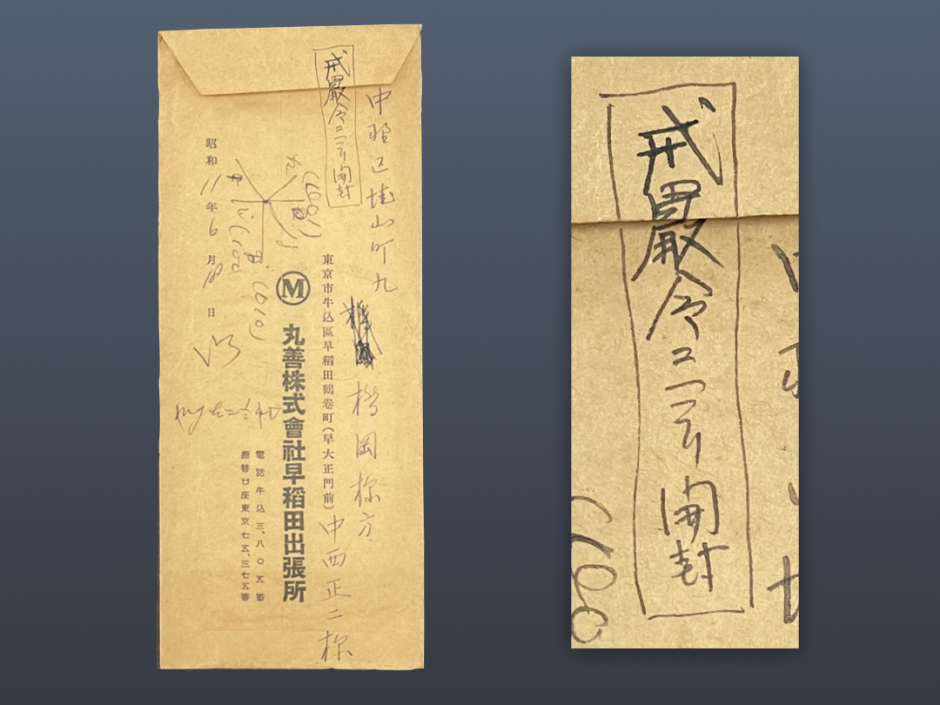 中野区塔山町九
岡様方
中西正二様
戒嚴令ニヨリ開封
東京市牛込區早稻田鶴巻町(早大正門前)
Ⓜ
丸善株式會社早稻田出張所
電話牛込三、八〇五番
振替口座東京七五、三七五番
昭和11年6月 日
(100)
(010)
√3
戒嚴令ニヨリ開封